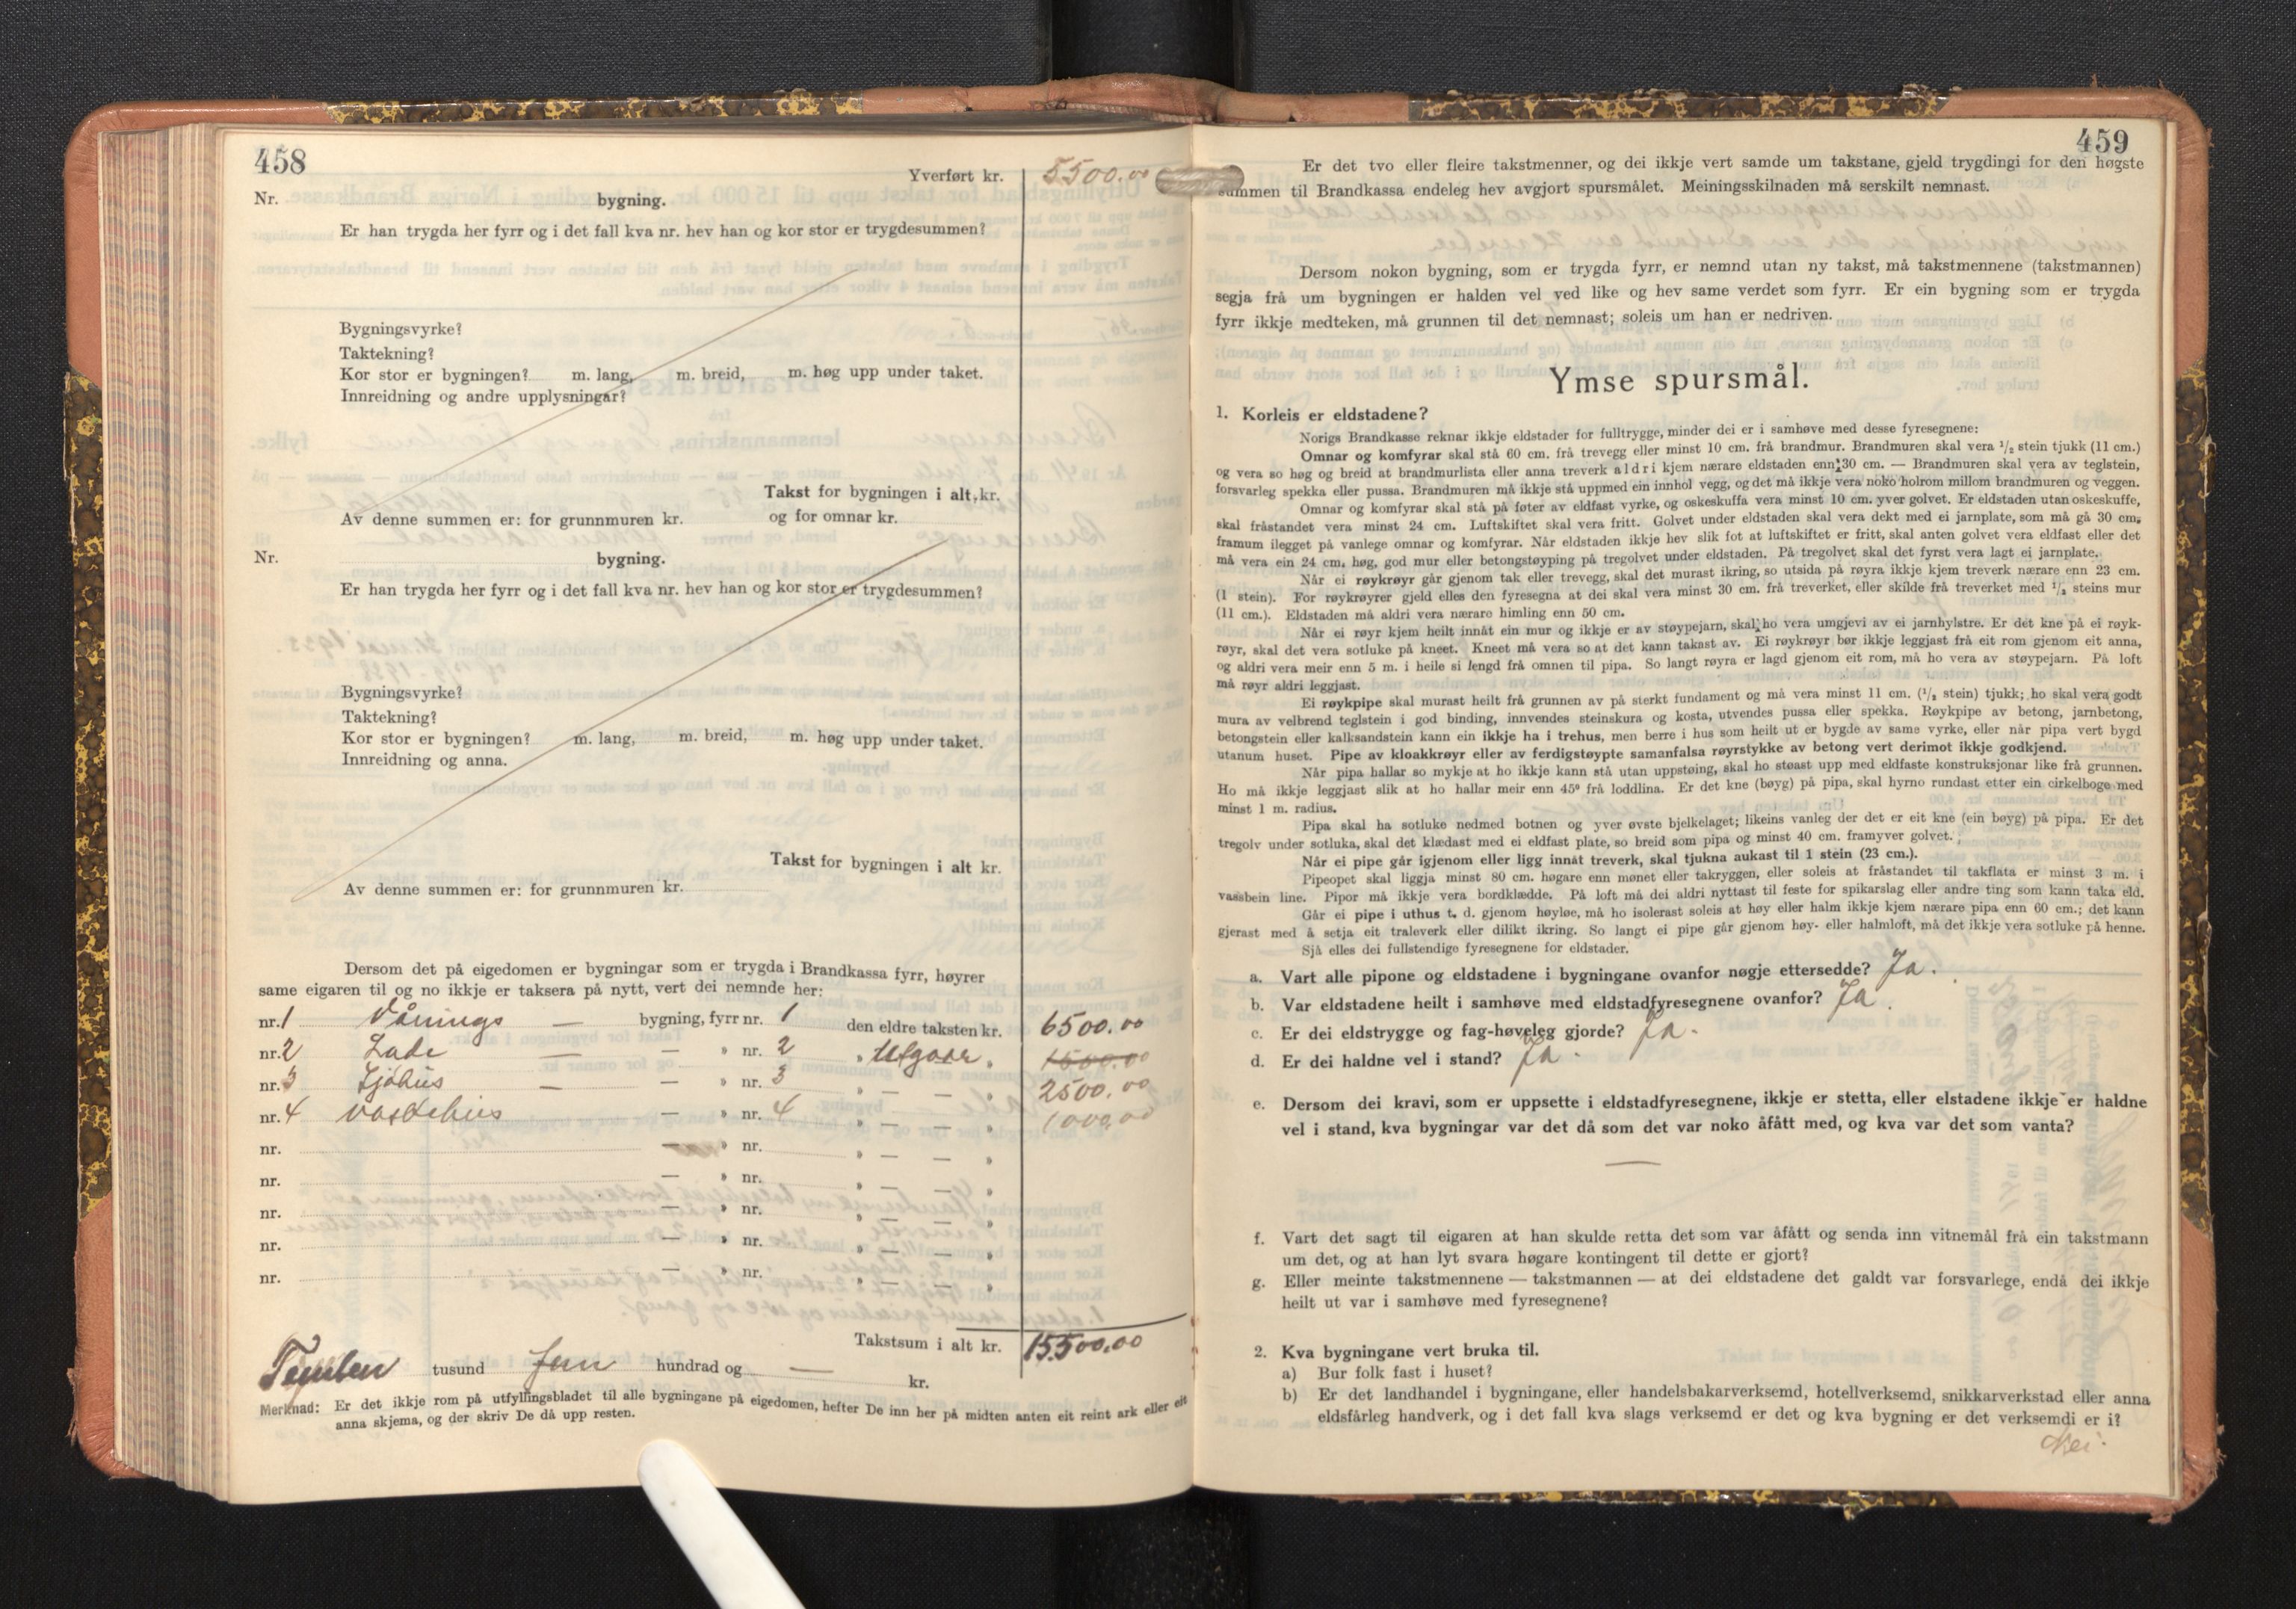 458
Yverført kr. 5500.00
Nr. bygning.
Er han trygda her fyrr og i det fall kva nr. hev han og kor stor er trygdesummen?
Bygningsvyrke?
Taktekning?
Kor stor er bygningen? m. lang, m. breid, m. høg upp under taket.
Innreidning og andre upplysningar?
Takst for bygningen i alt kr.
Av denne summen er: for grunnmuren kr. og for omnar kr.
Nr. bygning.
Er han trygda her fyrr og i det fall kva nr. hev han og kor stor er trygdesummen?
Bygningsvyrke?
Taktekning?
Kor stor er bygningen? m. lang, m. breid, m. høg upp under taket.
Innreidning og anna.
Takst for bygningen i alt kr.
Av denne summen er: for grunnmuren kr.
Dersom det på eigedomen er bygningar som er trygda i Brandkassa fyrr, høyrer
same eigaren til og no ikkje er taksera på nytt, vert dei nemnde her:
nr. 1 Vånings — bygning, fyrr nr. 1 den eldre taksten kr. 6500.00
nr. 2 Lade — — » nr. 2 „ Utgaar „ 1500.00
nr. 3 Sjøhus — — » nr. 3 „ — — „ 2500.00
nr. 4 Vaskehus — » nr. 4 „ — — „ 1000,00
nr. — » nr. „ — — „
nr. — » nr. „ — — „
nr. — » nr. „ — — „
nr. — » nr. „ — — „
nr. — » nr. „ — — „
Takstsum i alt kr. 15.500,00
Femten tusund fem hundrad og — kr.
Merknad: Er det ikkje rom på utfyllingsbladet til alle bygningane på eigedomen, hefter De inn her på midten anten eit reint ark eller eit
anna skjema, og der skriv De då upp resten.
459
Er det tvo eller fleire takstmenner, og dei ikkje vert samde um takstane, gjeld trygdingi for den høgste
summen til Brandkassa endeleg hev avgjort spursmålet. Meiningsskilnaden må serskilt nemnast.
Dersom nokon bygning, som er trygda fyrr, er nemnd utan ny takst, må takstmennene (takstmannen)
segja frå um bygningen er halden vel ved like og hev same verdet som fyrr. Er ein bygning som er trygda
fyrr ikkje medteken, må grunnen til det nemnast; soleis um han er nedriven.
Ymse spursmål.
1. Korleis er eldstadene?
Norigs Brandkasse reknar ikkje eldstader for fulltrygge, minder dei er i samhøve med desse fyresegnene:
Omnar og komfyrar skal stå 60 cm. frå trevegg eller minst 10 cm. frå brandmur. Brandmuren skal vera 1/2 stein tjukk (11 cm.)
og vera so høg og breid at brandmurlista eller anna treverk aldri kjem nærare eldstaden enn 30 cm. — Brandmuren skal vera av teglstein,
forsvarleg spekka eller pussa. Brandmuren må ikkje stå uppmed ein innhol vegg, og det må ikkje vera noko holrom millom brandmuren og veggen.
Omnar og komfyrar skal stå på føter av eldfast vyrke, og oskeskuffa vera minst 10 cm. yver golvet. Er eldstaden utan oskeskuffe,
skal fråstandet vera minst 24 cm. Luftskiftet skal vera fritt. Golvet under eldstaden skal vera dekt med ei jarnplate, som må gå 30 cm.
framum ilegget på vanlege omnar og komfyrar. Når eldstaden ikkje hev slik fot at luftskiftet er fritt, skal anten golvet vera eldfast eller det
må vera ein 24 cm. høg, god mur eller betongstøyping på tregolvet under eldstaden. På tregolvet skal det fyrst vera lagt ei jarnplate.
Når ei røykrøyr går gjenom tak eller trevegg, skal det murast ikring, so utsida på røyra ikkje kjem treverk nærare enn 23 cm.
(1 stein). For røykrøyrer gjeld elles den fyresegna at dei skal vera minst 30 cm. frå treverket, eller skilde frå treverket med 1/2 steins mur
(11 cm.). Eldstaden må aldri vera nærare himling enn 50 cm.
Når ei røyr kjem heilt innåt ein mur og ikkje er av støypejarn, skal ho vera umgjevi av ei jarnhylstre. Er det kne på ei røyk-
røyr, skal det vera sotluke på kneet. Kneet må vera so at det kann takast av. Ei røykrøyr bør ikkje leggjast frå eit rom gjenom eit anna,
og aldri vera meir enn 5 m. i heile si lengd frå omnen til pipa. So langt røyra er lagd gjenom eit rom, må ho vera av støypejarn. På loft
må røyr aldri leggjast.
Ei røykpipe skal murast heilt frå grunnen av på sterkt fundament og må vera minst 11 cm. (1/2 stein) tjukk; ho skal vera godt
mura av velbrend teglstein i god binding, innvendes steinskura og kosta, utvendes pussa eller spekka. Røykpipe av betong, jarnbetong,
betongstein eller kalksandstein kann ein ikkje ha i trehus, men berre i hus som heilt ut er bygde av same vyrke, eller når pipa vert bygd
utanum huset. Pipe av kloakkrøyr eller av ferdigstøypte samanfalsa røyrstykke av betong vert derimot ikkje godkjend.
Når pipa hallar so mykje at ho ikkje kann stå utan uppstøing, skal ho støast upp med eldfaste konstruksjonar like frå grunnen.
Ho må ikkje leggjast slik at ho hallar meir enn 45° frå loddlina. Er det kne (bøyg) på pipa, skal hyrno rundast etter ein cirkelboge med
minst 1 m. radius.
Pipa skal ha sotluke nedmed botnen og yver øvste bjelkelaget; likeins vanleg der det er eit kne (ein bøyg) på pipa. Er det
tregolv under sotluka, skal det klædast med ei eldfast plate, so breid som pipa og minst 40 cm. framyver golvet.
Når ei pipe går igjenom eller ligg innåt treverk, skal tjukna aukast til 1 stein (23 cm.).
Pipeopet skal liggja minst 80 cm. høgare enn mønet eller takryggen, eller soleis at fråstandet til takflata er minst 3 m. i
vassbein line. Pipor må ikkje vera bordklædde. På loft må dei aldri nyttast til feste for spikarslag eller andre ting som kann taka eld.
Går ei pipe i uthus t. d. gjenom høyløe, må ho isolerast soleis at høy eller halm ikkje kjem nærare pipa enn 60 cm.; det kann
gjerast med å setja eit traleverk eller dilikt ikring. So langt ei pipe går gjenom høy- eller halmloft, må det ikkje vera sotluke på henne.
Sjå elles dei fullstendige fyresegnene for eldstader.
a. Vart alle pipone og eldstadene i bygningane ovanfor nøgje ettersedde? Ja.
b. Var eldstadene heilt i samhøve med eldstadfyresegnene ovanfor? Ja.
c. Er dei eldstrygge og fag-høveleg gjorde? Ja.
d. Er dei haldne vel i stand? Ja.
e. Dersom dei kravi, som er uppsette i eldstadfyresegnene, ikkje er stetta, eller elstadene ikkje er haldne
vel i stand, kva bygningar var det då som det var noko åfått med, og kva var det som vanta?
—
f. Vart det sagt til eigaren at han skulde retta det som var åfått og senda inn vitnemål frå ein takstmann
um det, og at han lyt svara høgare kontingent til dette er gjort?
g. Eller meinte takstmennene — takstmannen — at dei eldstadene det galdt var forsvarlege, endå dei ikkje
heilt ut var i samhøve med fyresegnene?
2. Kva bygningane vert bruka til.
a) Bur folk fast i huset?
b) Er det landhandel i bygningane, eller handelsbakarverksemd, hotellverksemd, snikkarverkstad eller anna
eldsfårleg handverk, og i det fall kva slags verksemd er det og kva bygning er det verksemdi er i?
Nei.